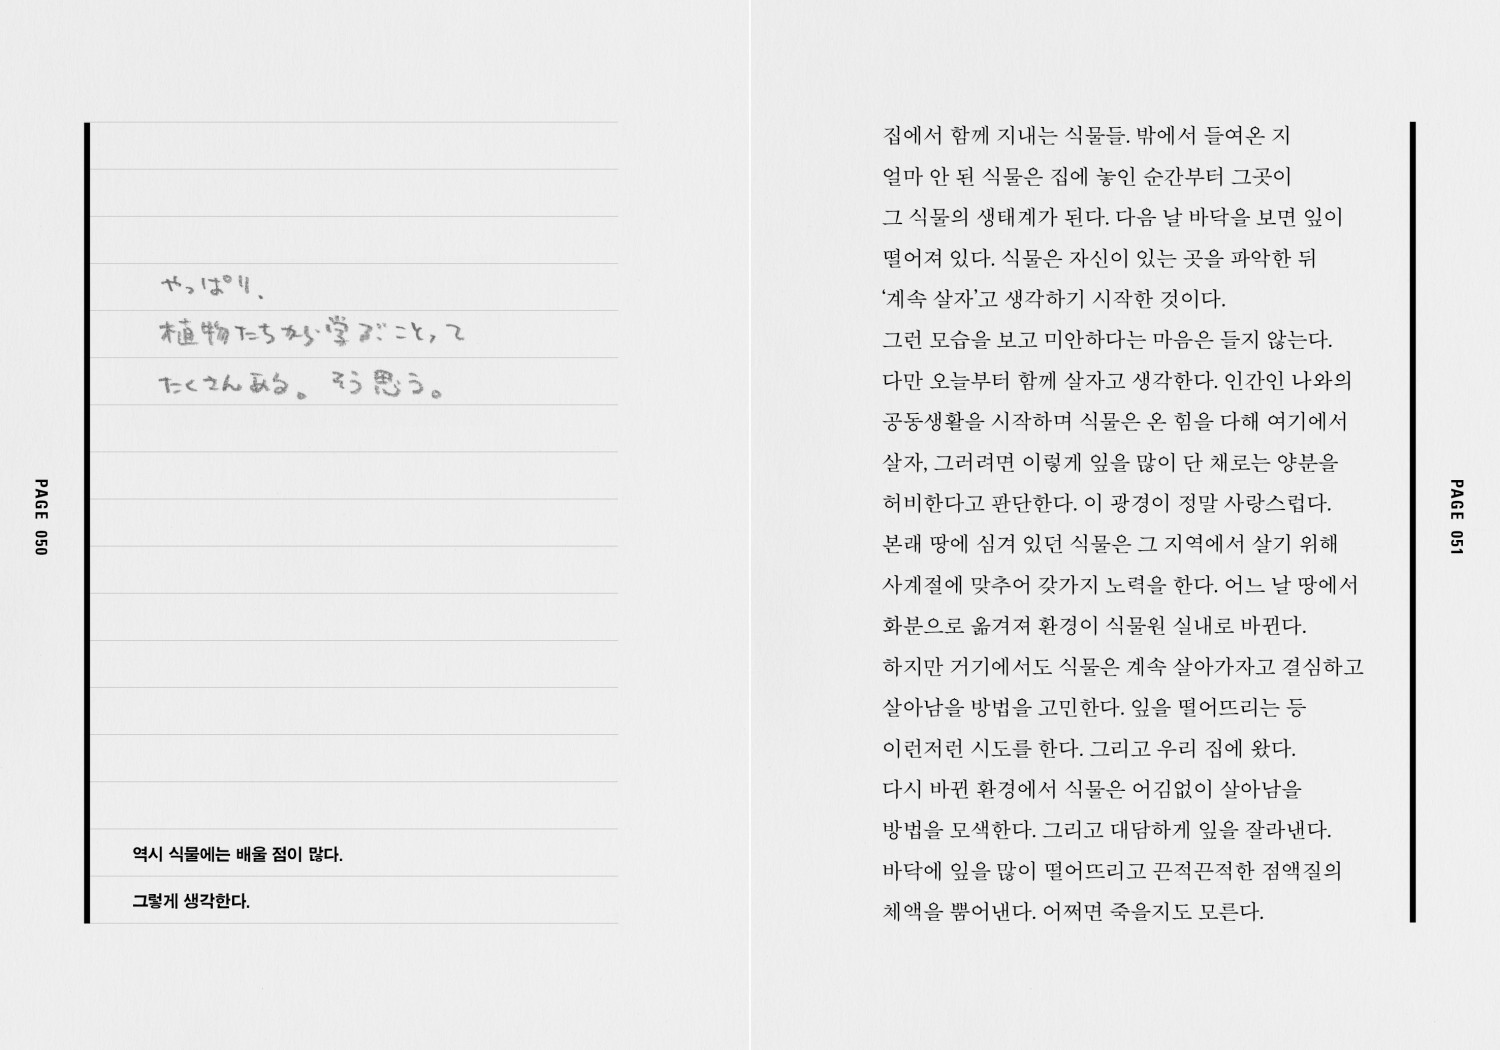 やっぱり、
植物たちから学ぶことって
たくさんある。そう思う。
PAGE 050
역시 식물에는 배울 점이 많다.
그렇게 생각한다.
집에서 함께 지내는 식물들. 밖에서 들여온 지
얼마 안 된 식물은 집에 놓인 순간부터 그곳이
그 식물의 생태계가 된다. 다음 날 바닥을 보면 잎이
떨어져 있다. 식물은 자신이 있는 곳을 파악한 뒤
‘계속 살자’고 생각하기 시작한 것이다.
그런 모습을 보고 미안하다는 마음은 들지 않는다.
다만 오늘부터 함께 살자고 생각한다. 인간인 나와의
공동생활을 시작하며 식물은 온 힘을 다해 여기에서
살자, 그러려면 이렇게 잎을 많이 단 채로는 양분을
허비한다고 판단한다. 이 광경이 정말 사랑스럽다.
본래 땅에 심겨 있던 식물은 그 지역에서 살기 위해
사계절에 맞추어 갖가지 노력을 한다. 어느 날 땅에서
화분으로 옮겨져 환경이 식물원 실내로 바뀐다.
하지만 거기에서도 식물은 계속 살아가자고 결심하고
살아남을 방법을 고민한다. 잎을 떨어뜨리는 등
이런저런 시도를 한다. 그리고 우리 집에 왔다.
다시 바뀐 환경에서 식물은 어김없이 살아남을
방법을 모색한다. 그리고 대담하게 잎을 잘라낸다.
바닥에 잎을 많이 떨어뜨리고 끈적끈적한 점액질의
체액을 뿜어낸다. 어쩌면 죽을지도 모른다.
PAGE 051